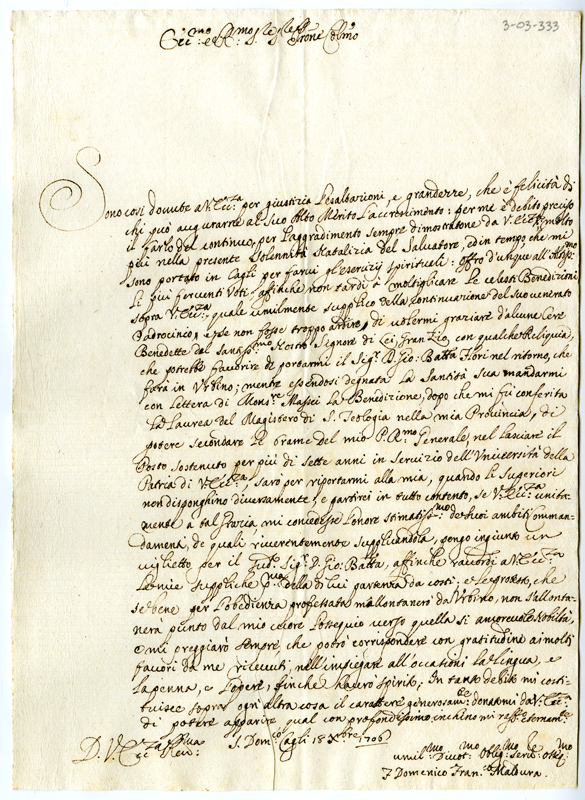 3-03-333
Ecc:mo e R:mo Sig:re Sig:re Prone Colmo
Sono così dovute a V. Ecc:za per giustizia l'esaltazioni, e grandezze, che è felicità di
chi può augurarne al suo Alto Merito l'accrescimento: per me è debito preciso
il farlo del continuo, per l'aggradimento sempre dimostratone da V. Ecc:za, molto
più nella presente Solennità Natalizia del Salvatore, ed in tempo che mi
sono portato in Cagli per farvi gl'esercizij spirituali: offro dunque all'Altiss:mo
li più ferventi Voti, affinche non tardi a moltiplicare le celesti Benedizioni
sopra V. Ecc:za, quale umilmente supplico della continuazione del suo venerato
Padrocinio, e se non fosse troppo ardire, di volermi graziare d'alcune Cere
Benedette dal Santiss:mo Nostro Signore di Lei Gran Zio, con qualche Reliquia,
che potrebbe favorire di portarmi il Sig:r D. Gio: Batta Flori nel ritorno, che
farà in Urbino; mentre essendosi degnata la Santità sua mandarmi
con Lettera di Mons:re Massei la Benedizione, dopo che mi fù conferita
la Laurea del Magistero di S. Teologia nella mia Provincia, di
potere secondare le brame del mio P. R:mo Generale, nel lasciare il
Posto sostenuto per più di sette anni in servizio dell'Università della
Patria di V. Ecc:za, sarò per riportarmi alla mia, quando li Superiori
non disponghino diversamente, e partirei in tutto contento, se V. Ecc:za unita-
mente a tal grazia mi concedesse l'onore stimatiss:mo de suoi ambiti Comman-
damenti, de quali riverentemente supplicandola, pongo ingiunto un
viglietto per il Sig:r D. Gio: Batta, affinche raccordi a V. Ecc:za
le mie suppliche p:ma della di lui partenza da costì: e le protesto, che
sebene per l'obedienza professata m'allontanerò da Urbino, non s'allonta-
nerà punto dal mio cuore l'ossequio verso quella sì amorevole Nobiltà,
e mi preggiarò sempre, che potrò corrispondere con gratitudine ai molti
favori da me ricevuti, nell'impiegare all'occasioni la lingua, e
la penna, e l'opere, finche haverò spirito; In tanto debito mi costi-
tuisce sopra ogn'altra cosa il carattere generosam:te donatomi da V. Ecc:za
di potere apparire qual con profondissimo inchino mi ress:o eternam:te
D. V. Ecc:za R:ma
S. Dom:co Cagli 18 Xbre 1706
umil:mo Divot:mo Oblig:mo Serv:re Osseq:mo
F. Domenico Fran:co Maldura.